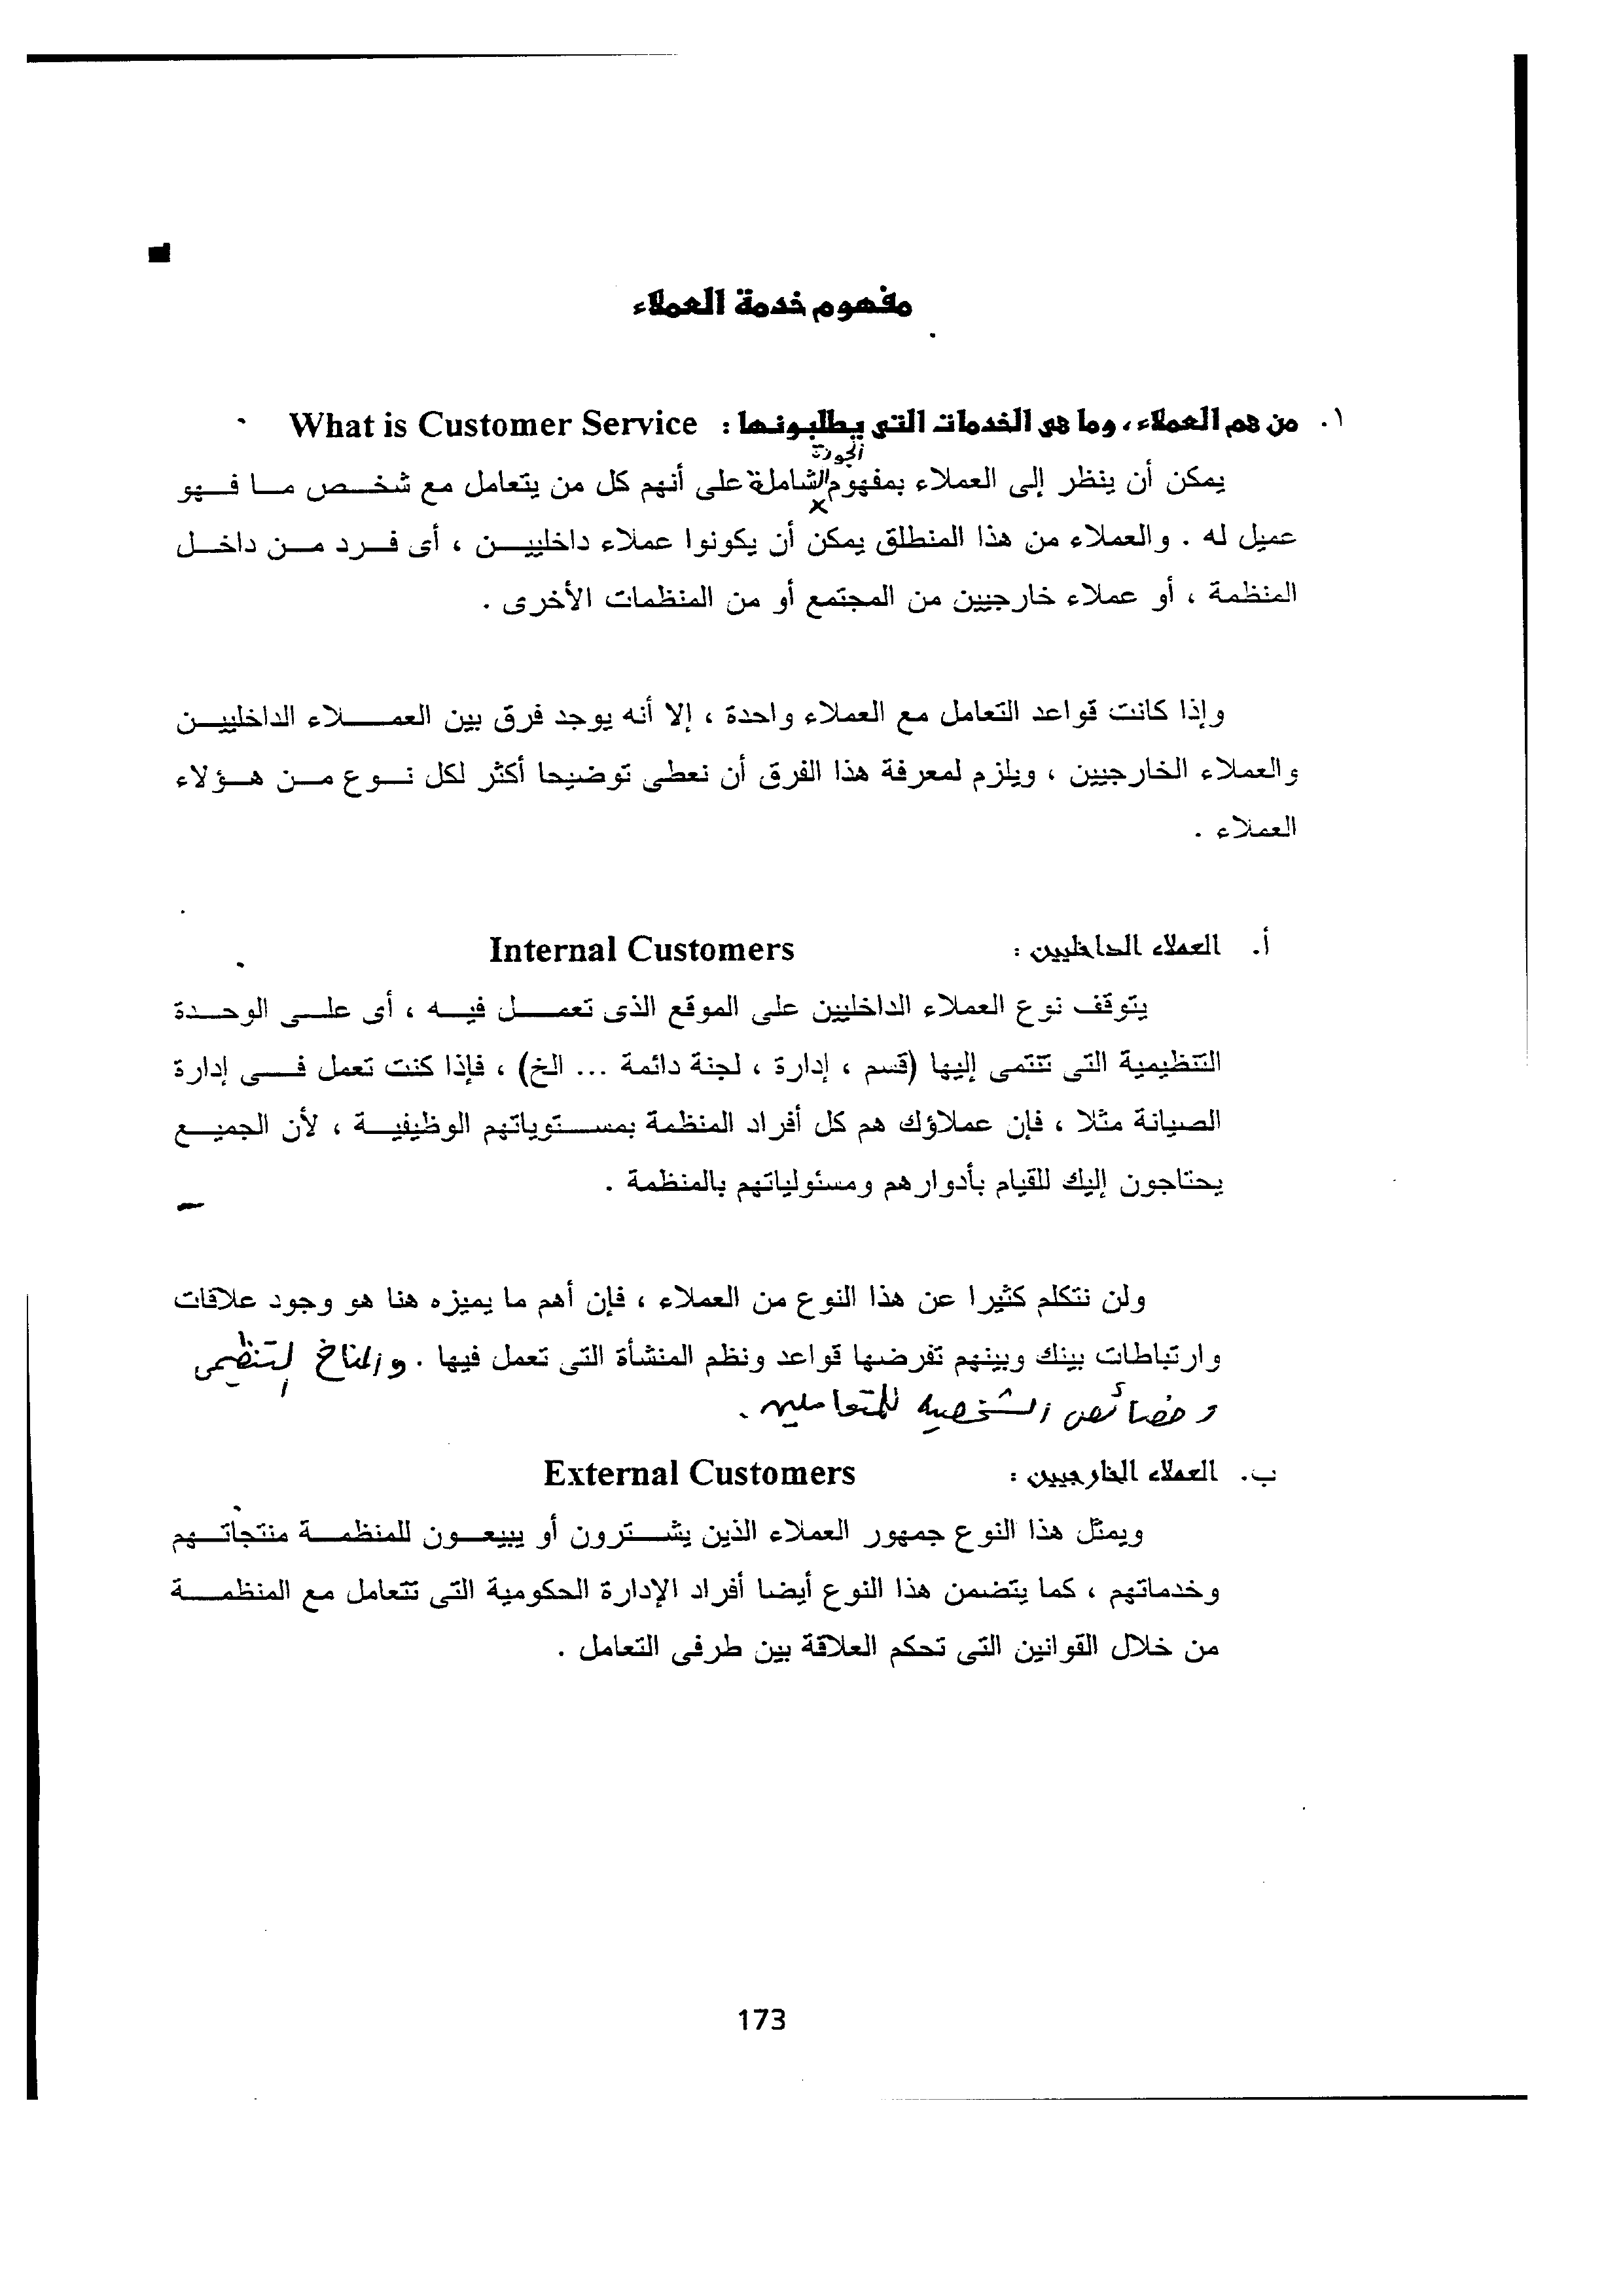 مفهوم خدمة العملاء
١. من هم العملاء، وما هى الخدمات التى يطلبونها : What is Customer Service
الجودة
يمكن أن ينظر إلى العملاء بمفهوم الشاملة على أنهم كل من يتعامل مع شخص ما فهو
عميل له . والعملاء من هذا المنطلق يمكن أن يكونوا عملاء داخليين ، أى فرد من داخل
المنظمة ، أو عملاء خارجيين من المجتمع أو من المنظمات الأخرى .
وإذا كانت قواعد التعامل مع العملاء واحدة ، إلا أنه يوجد فرق بين العملاء الداخليين
والعملاء الخارجيين ، ويلزم لمعرفة هذا الفرق أن نعطى توضيحا أكثر لكل نوع من هؤلاء
العملاء .
أ. العملاء الداخليين : Internal Customers
يتوقف نوع العملاء الداخليين على الموقع الذى تعمل فيه ، أى على الوحدة
التنظيمية التى تنتمى إليها (قسم ، إدارة ، لجنة دائمة ... الخ) ، فإذا كنت تعمل فى إدارة
الصيانة مثلا ، فإن عملاؤك هم كل أفراد المنظمة بمستوياتهم الوظيفية ، لأن الجميع
يحتاجون إليك للقيام بأدوارهم ومسئولياتهم بالمنظمة .
ولن نتكلم كثيرا عن هذا النوع من العملاء ، فإن أهم ما يميزه هنا هو وجود علاقات
وارتباطات بينك وبينهم تفرضها قواعد ونظم المنشأة التى تعمل فيها . والمناخ التنظيمى
وخصائص الشخصية للمتعاملين .
ب. العملاء الخارجيين : External Customers
ويمثل هذا النوع جمهور العملاء الذين يشترون أو يبيعون للمنظمة منتجاتهم
وخدماتهم ، كما يتضمن هذا النوع أيضا أفراد الإدارة الحكومية التى تتعامل مع المنظمة
من خلال القوانين التى تحكم العلاقة بين طرفى التعامل .
173